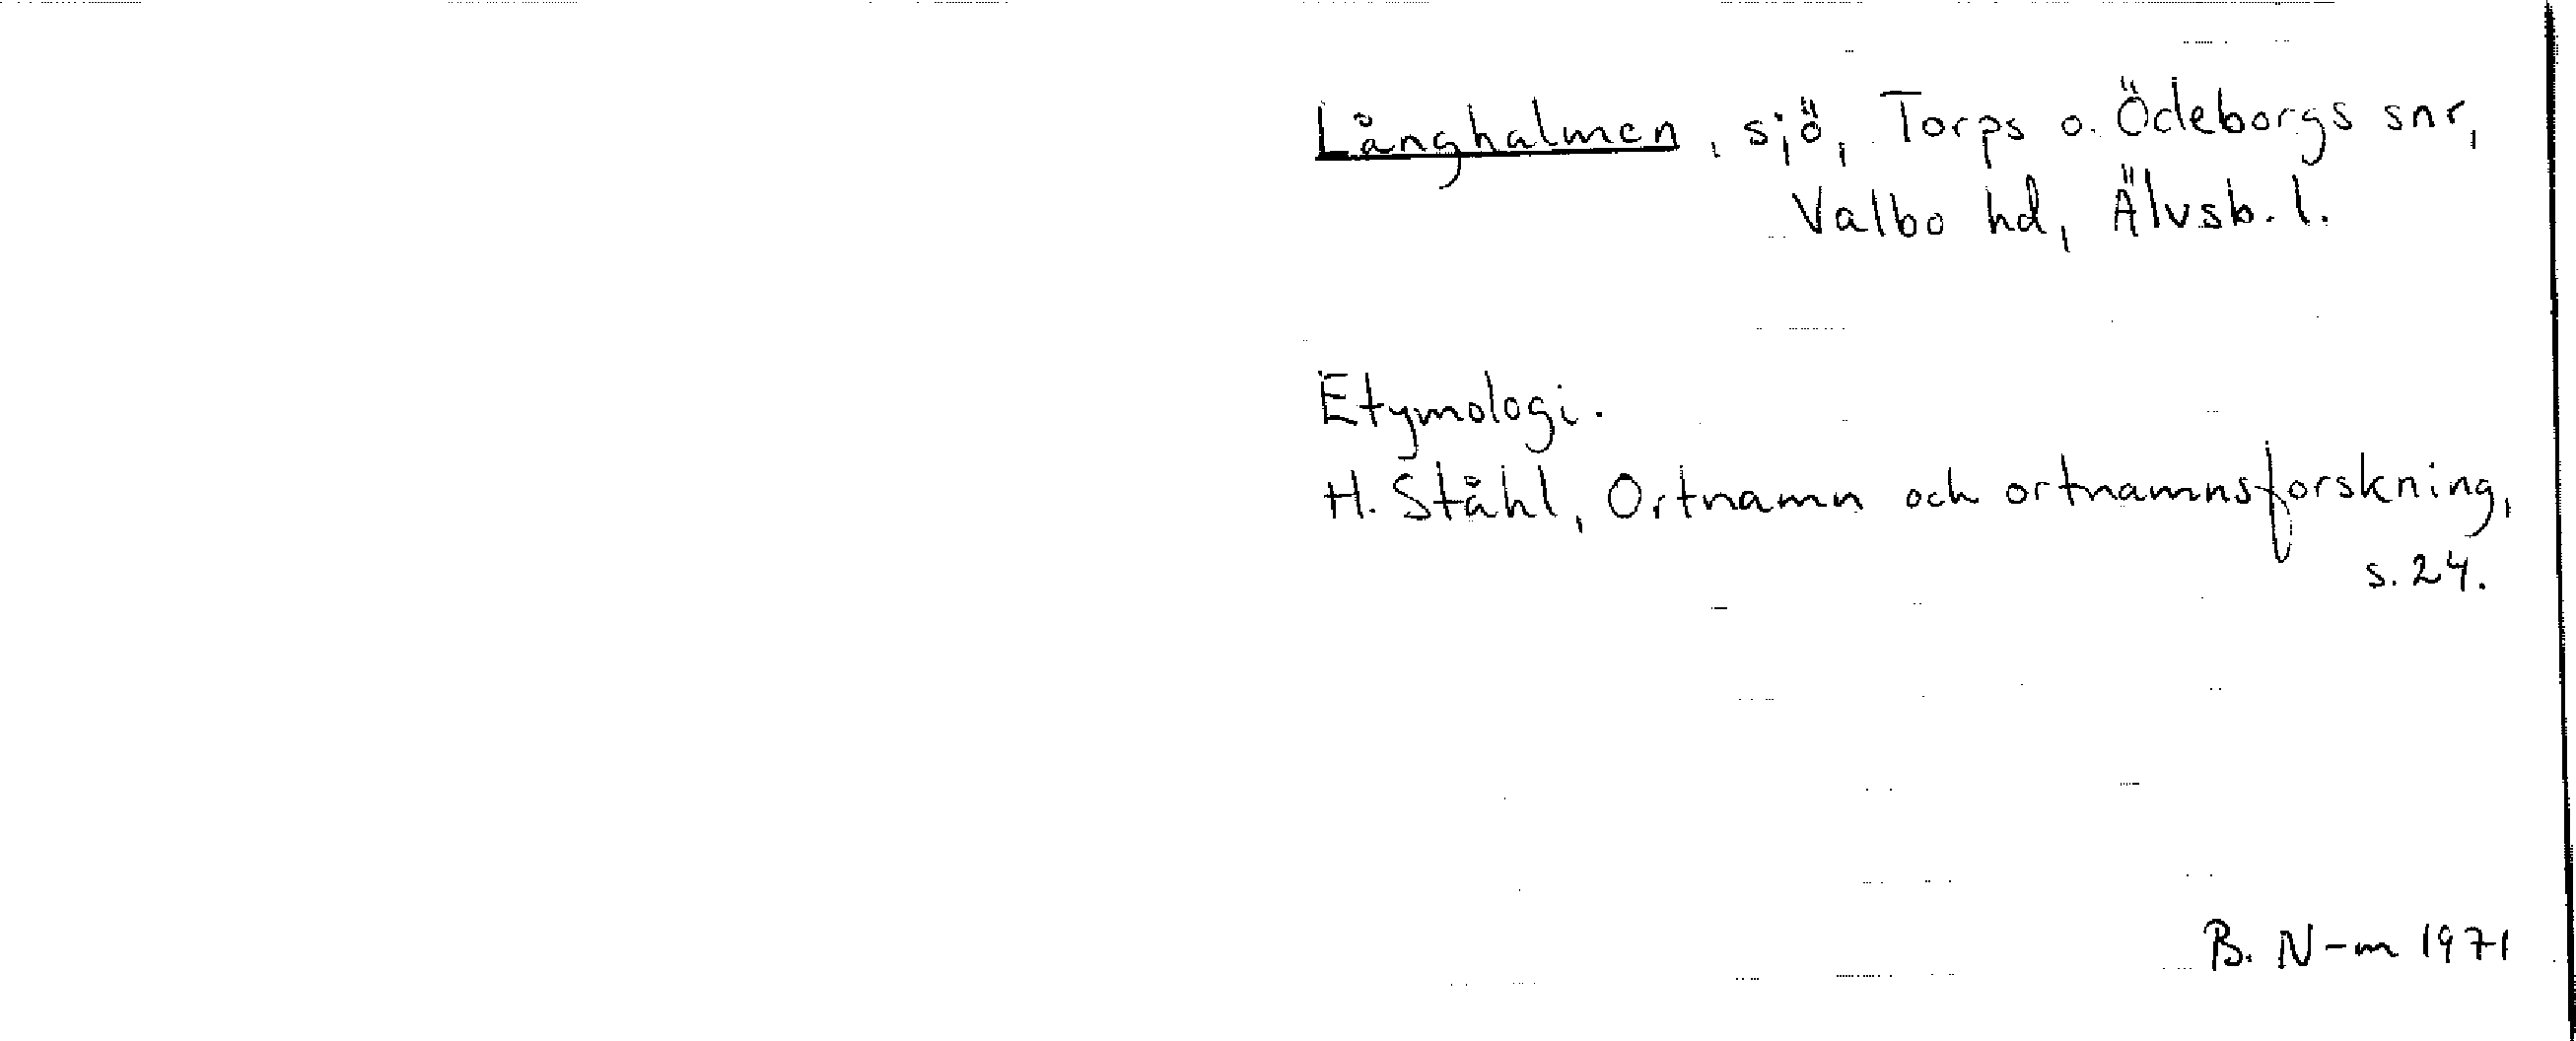 Långhalmen, sjö, Torps o. Ödeborgs snr,
Valbo hd, Älvsb. l.
Etymologi.
H. Ståhl, Ortnamn och ortnamnsforskning,
s. 24.
B. N-m 1971